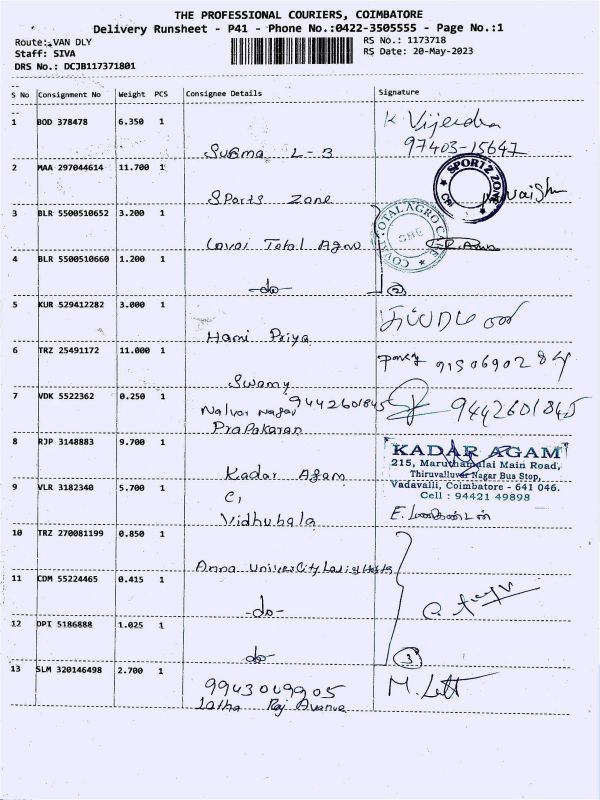 THE PROFESSIONAL COURIERS, COIMBATORE
Delivery Runsheet - P41 - Phone No.:0422-3505555 - Page No.:1
Route: VAN DLY
Staff: SIVA
DRS No.: DCJB117371801
RS No.: 1173718
RS Date: 20-May-2023
S No Consignment No Weight PCS Consignee Details Signature
1 BOD 378478 6.350 1
K Vijendra
97403-15647
Susma L-3
2 MAA 297044614 11.700 1
SPORTZ ZONE
Sports Zone
3 BLR 5500510652 3.200 1
Covai Total Agro
4 BLR 5500510660 1.200 1
-do- 2
5 KUR 529412282 3.000 1
Hami Priya
6 TRZ 25491172 11.000 1
9150690284
Swamy
7 VDK 5522362 0.250 1
9442601845 9442601845
Nalvar Nagar
Prapakaran
8 RJP 3148883 9.700 1
KADAR AGAM
215, Maruthamalai Main Road,
Thiruvalluver Nagar Bus Stop,
Vadavalli, Coimbatore - 641 046.
Cell : 94421 49898
Kadar Agam
9 VLR 3182340 5.700 1
Vidhubala
10 TRZ 270081199 0.850 1
Anna University
11 CDM 55224465 0.415 1
-do-
12 DPI 5186888 1.025 1
do 3
13 SLM 320146498 2.700 1
9943049905
Latha Raj Avenue